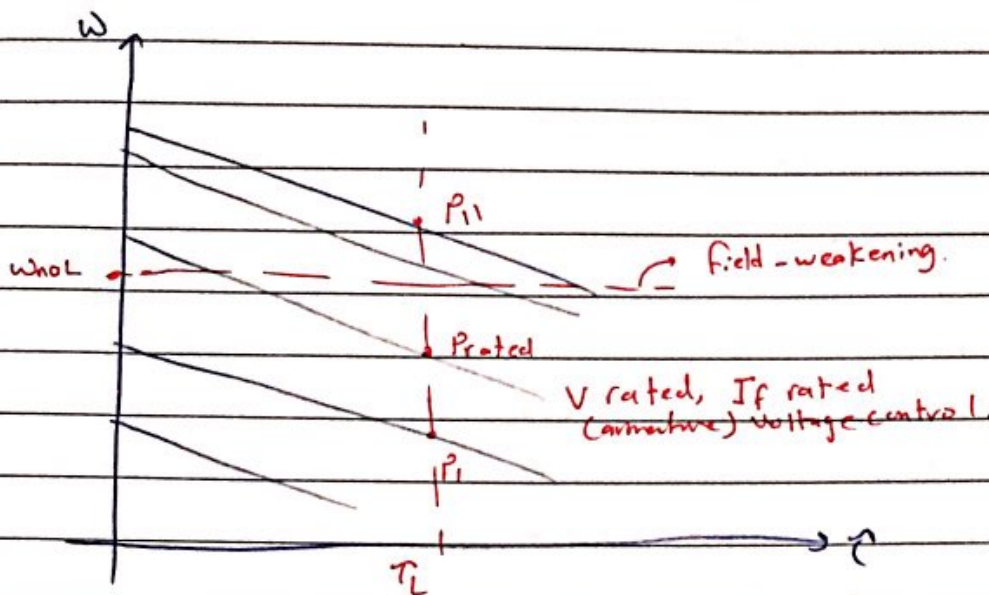 ω
P11
ωnoL
field-weakening.
Prated
V rated, If rated
(armature) voltage control.
P1
τ
TL